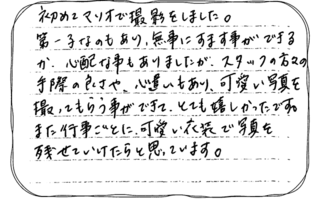 初めてマリオで撮影をしました。
第一子なのもあり、無事にすます事ができる
か、心配な事もありましたが、スタッフの方々の
手際の良さや、心遣いもあり、可愛い写真を
撮ってもらう事ができて、とても嬉しかったです。
また行事ごとに、可愛い衣装で写真を
残せていけたらと思っています。